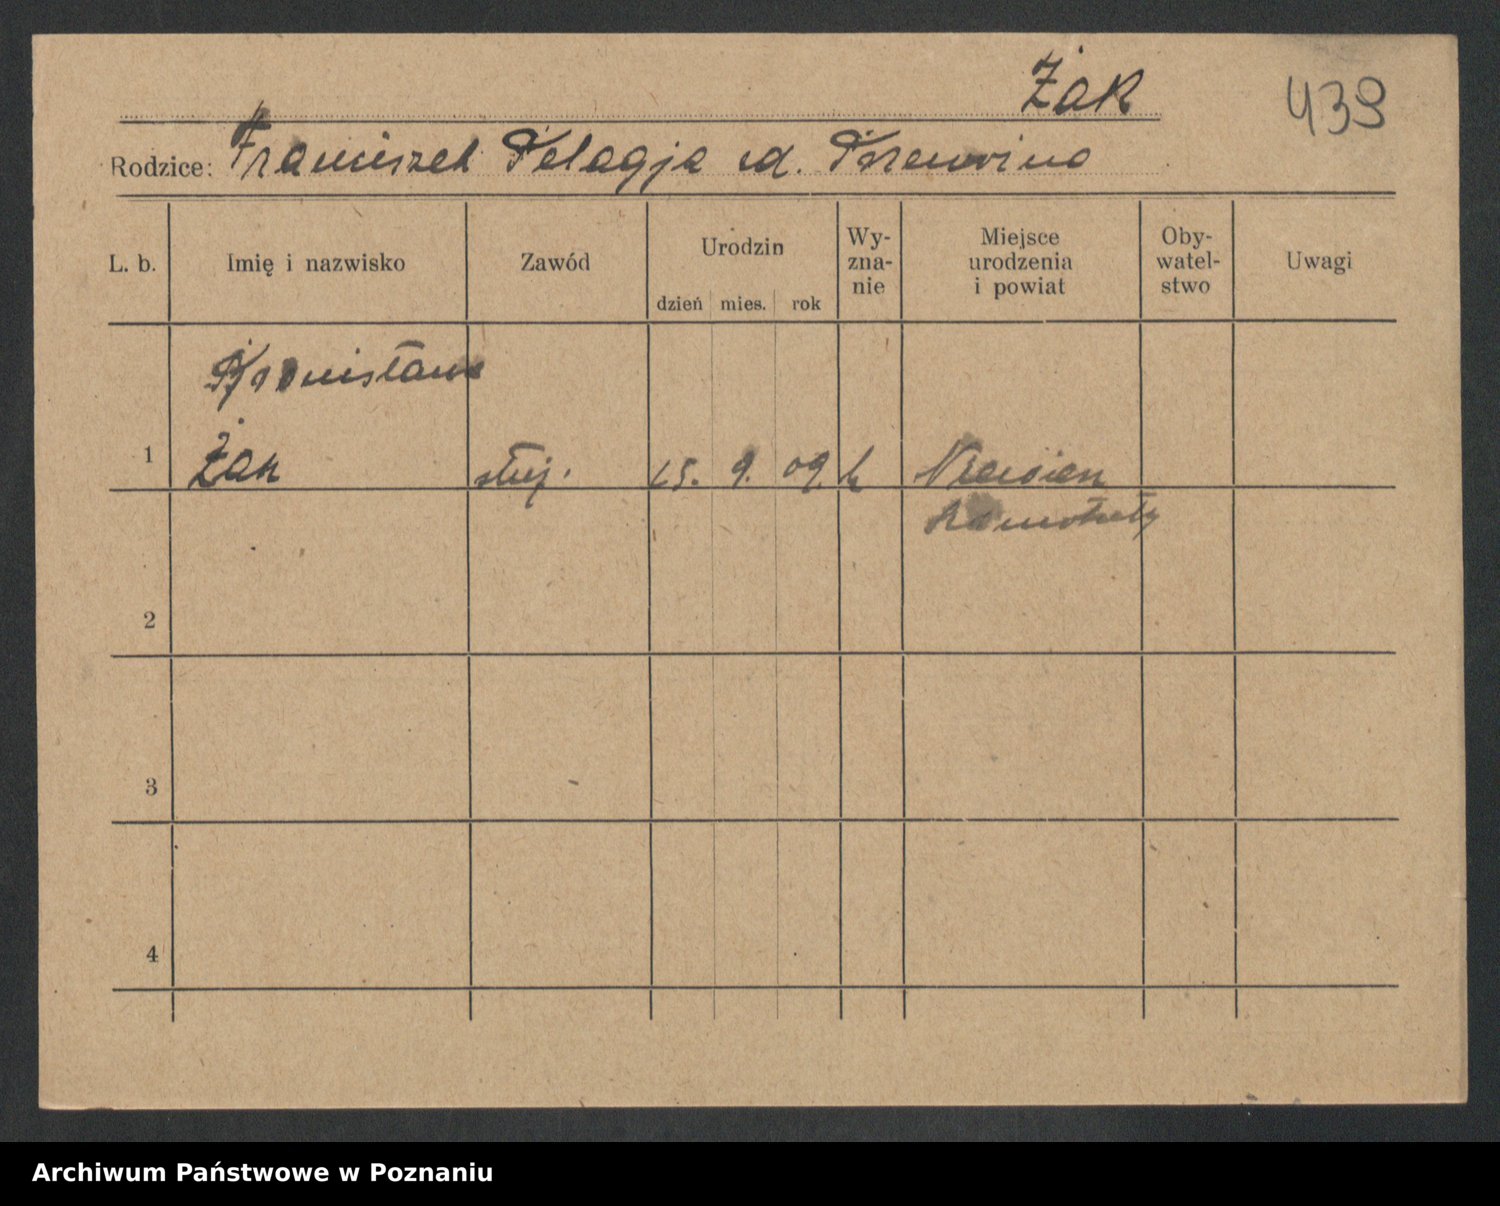 Żak
439
Rodzice: Franciszek Pelagja zd.
L. b.
Imię i nazwisko
Zawód
Urodzin
dzień mies. rok
Wy-
zna-
nie
Miejsce
urodzenia
i powiat
Oby-
watel-
stwo
Uwagi
Bronisława
1 Żak służ. 15. 9. 09. k
Szamotuły
2
3
4
Archiwum Państwowe w Poznaniu